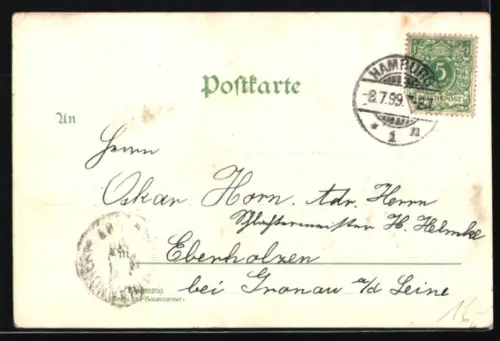 Postkarte
HAMBURG
8.7.99.
* 1 n
5
REICHSPOST
An
Herrn
Oskar Horn. Adr. Herrn
Schlachtermeister H. Helmke
in
Eberholzen
bei Gronau a/d Leine
Wohnung
16,-